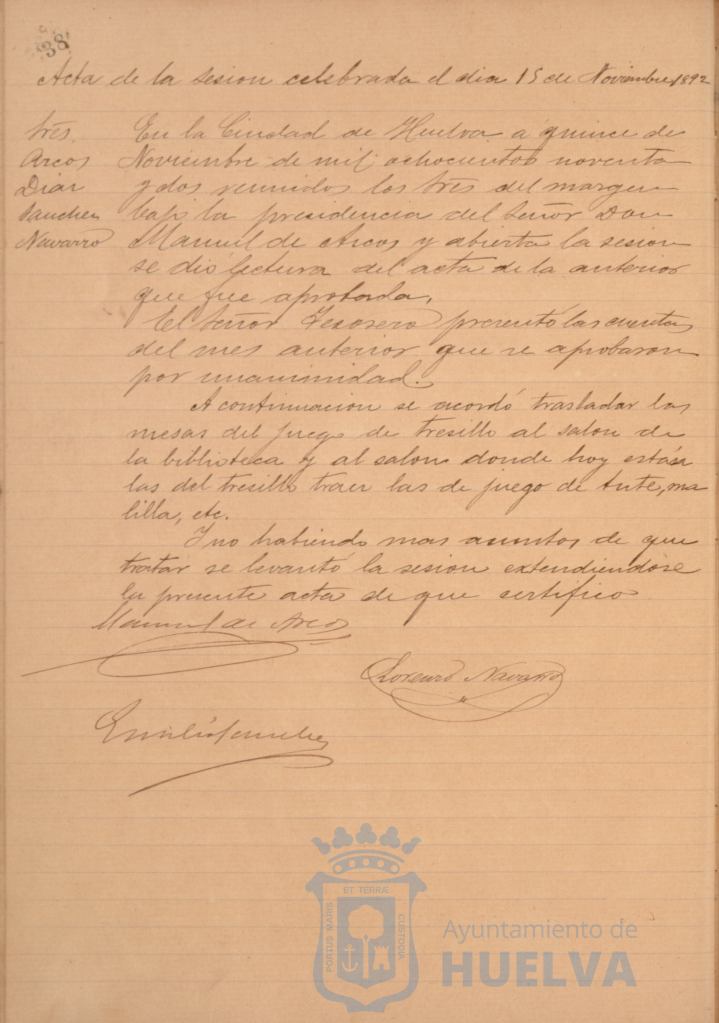 38
Acta de la sesion celebrada el dia 15 de Noviembre 1892
Srés.
Arcos
Diaz
Sanchez
Navarro
En la Ciudad de Huelva a quince de
Noviembre de mil ochocientos noventa
y dos reunidos los Srés del margen
bajo la presidencia del Señor Don
Manuel de Arcos y abierta la sesion
se dió lectura del acta de la anterior
que fue aprobada.
El Señor Tesorero presentó las cuentas
del mes anterior que se aprobaron
por unanimidad.
A continuacion se acordó trasladar las
mesas del juego de tresillo al salon de
la biblioteca y al salon donde hoy están
las del tresillo traer las de juego de tute, ma
lilla, etc.
Y no habiendo mas asuntos de que
tratar se levantó la sesion extendiendose
la presente acta de que certifico
Manuel de Arcos
Lorenzo Navarro
Emilio Sanchez
ET TERRÆ
PORTUS MARIS
CUSTODIA
Ayuntamiento de
HUELVA